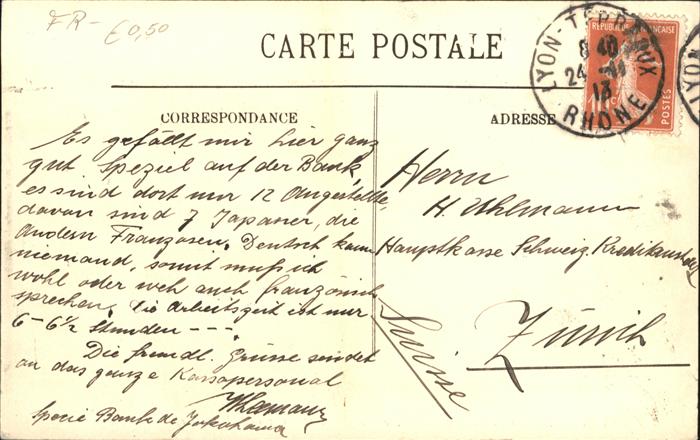 FR- €0,50
CARTE POSTALE
LYON-TERREAUX
8 40
24
13
RHONE
REPUBLIQUE FRANÇAISE
10c
POSTES
LYON
CORRESPONDANCE
Es gefällt mir hier ganz
gut. Speziel auf der Bank,
es sind dort nur 12 Angestellte,
davon sind 7 Japaner, die
Andern Franzosen. Deutsch kann
niemand, somit muß ich
wohl oder weh auch französisch
sprechen. Die Arbeitszeit ist nur
6-6½ Stunden ---.
Die freundl. Grüsse sendet
an das ganze Kassapersonal
Specie Bank de Yokohama
ADRESSE
Herrn
H. Uhlmann
Hauptkasse Schweiz. Kreditanstalt
Zürich
Suisse